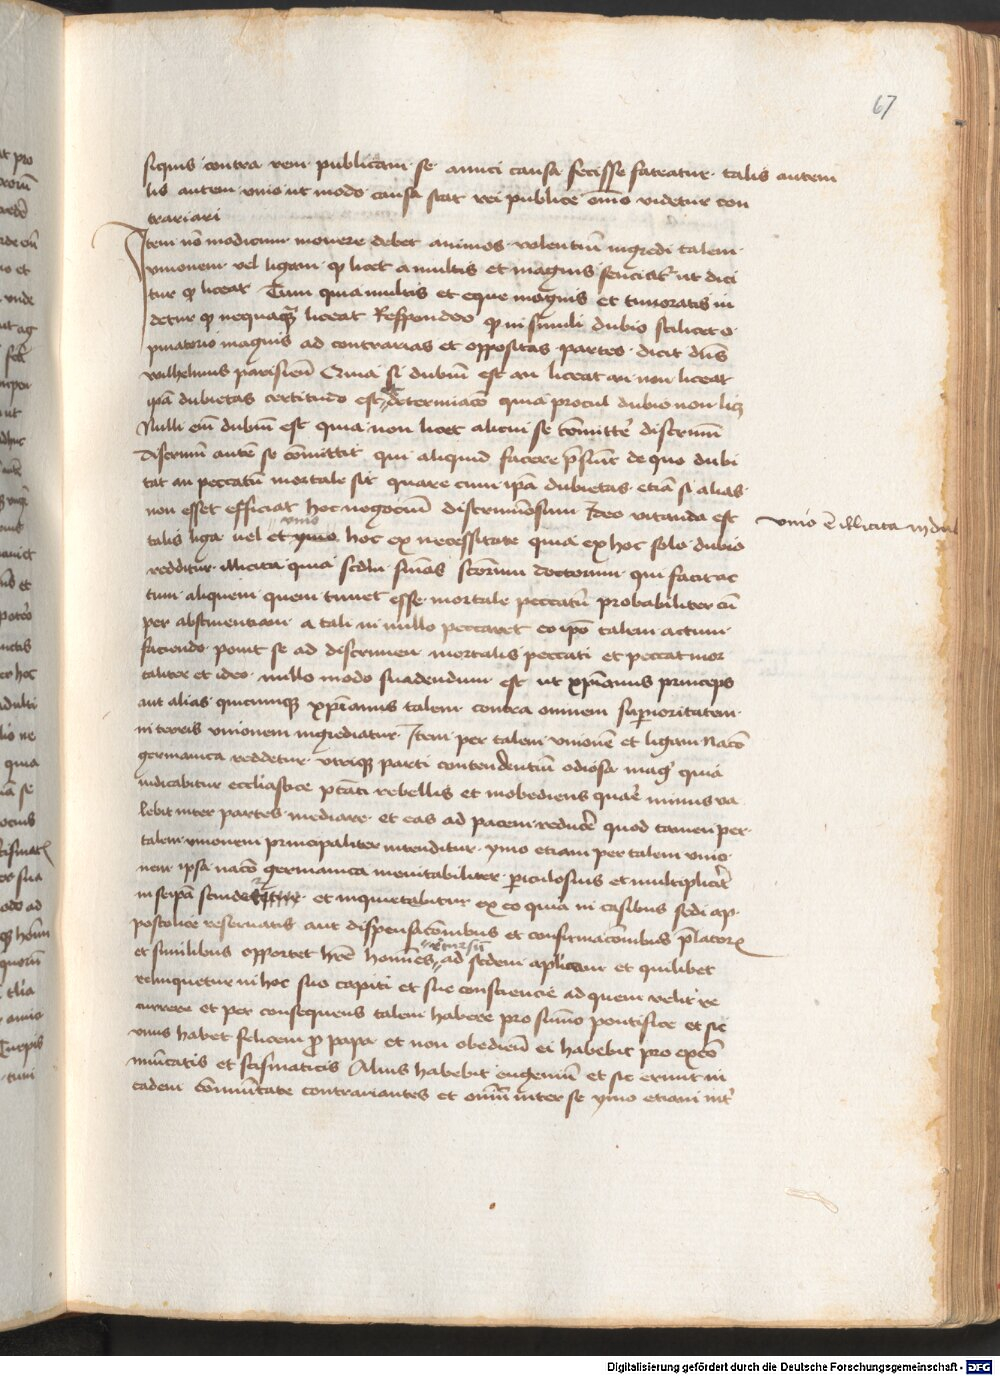 67
siquis contra rem publicam se amici causa fecisse fateatur talis autem
lis autem vnio ut modo causa stat rei publice om̄o videtur con
trariari
Item nō modicum mouere debet animos volentiū ingredi talem
vnionem vel ligam ꝙ licet a multis et magnis senciat᷑ ut dici
tur ꝙ liceat Tum quia multis et eque magnis et timoratis vi
detur ꝙ nequaq̄ liceat Respondeo ꝙ in simili dubio scilicet o
pinatorio magnis ad contrarias et oppositas partes dicit dn̄s
wilhelmus parisien̄ Quia si dubiū est an liceat an non liceat
ipā dubietas certitudo est determiacō quia procul dubio non lic͛
Nulli em̄ dubiū est quia non licet alicui se cōmittē discrimī
discrimī autē se cōmittit qui aliquid facere p̄sūit de quo dubi
tat an peccatū mortale sit quare cum ipā dubietas etiā si alias
non esset efficiat hoc negociū discrimōsum Ideo vitanda est
vnio
talis liga uel et ymo hoc ex necessitate quia ex hoc solo dubio
vnio ē illicita in
redditur illicita quia scdm̄ sn̄ias scōrum doctorum qui facit ac
tum aliquem quem timet esse mortale peccatū probabiliter cū
per abstinentiam a tali in nullo peccaret eo ipō talem actum
faciendo ponit se ad discrimen mortalis peccati et peccat mor
taliter et ideo nullo modo suadendum est ut xp̄ianus princeps
aut alias quicumq̄ xp̄ianus talem contra omnem sup̄ioritatem
in terris vnionem ingrediatur Item per talem vnionē et ligam nacō
germanica reddetur vtriq̄ parti contendentiū odiosa mag᷑ quia
iudicabitur eccliastice ptāti rebellis et inobediens quar̄ minus va
lebit inter partes mediare et eas ad pacem reducē quod tamen per
talem vnionem principaliter intenditur ymo etiam per talem vnio
nem ipsa nacō germanica ineuitabiliter periculosius et multiplicit᷑
in seipā scindetur et inquietabitur ex eo quia in casibus sedi ap
postolice reseruatis aut dispensacōnibus et confirmacōnibus p̄latorꝝ
recursū
et similibus opportet hr̄e homīes ad sedem aplicam et quilibet
relinquetur in hoc suo capiti et sue consciencie ad quem velit re
currere et per consequens talem habere pro sūmo pontifice et sic
vnus habet felicem ꝓ papa et non obedien̄ ei habebit pro exco
mūicatis et scismaticis Alius habebit eugeniū et sic erunt in
eadem cōmūitate contrariantes et inter se ymo etiam int᷑
Digitalisierung gefördert durch die Deutsche Forschungsgemeinschaft - DFG